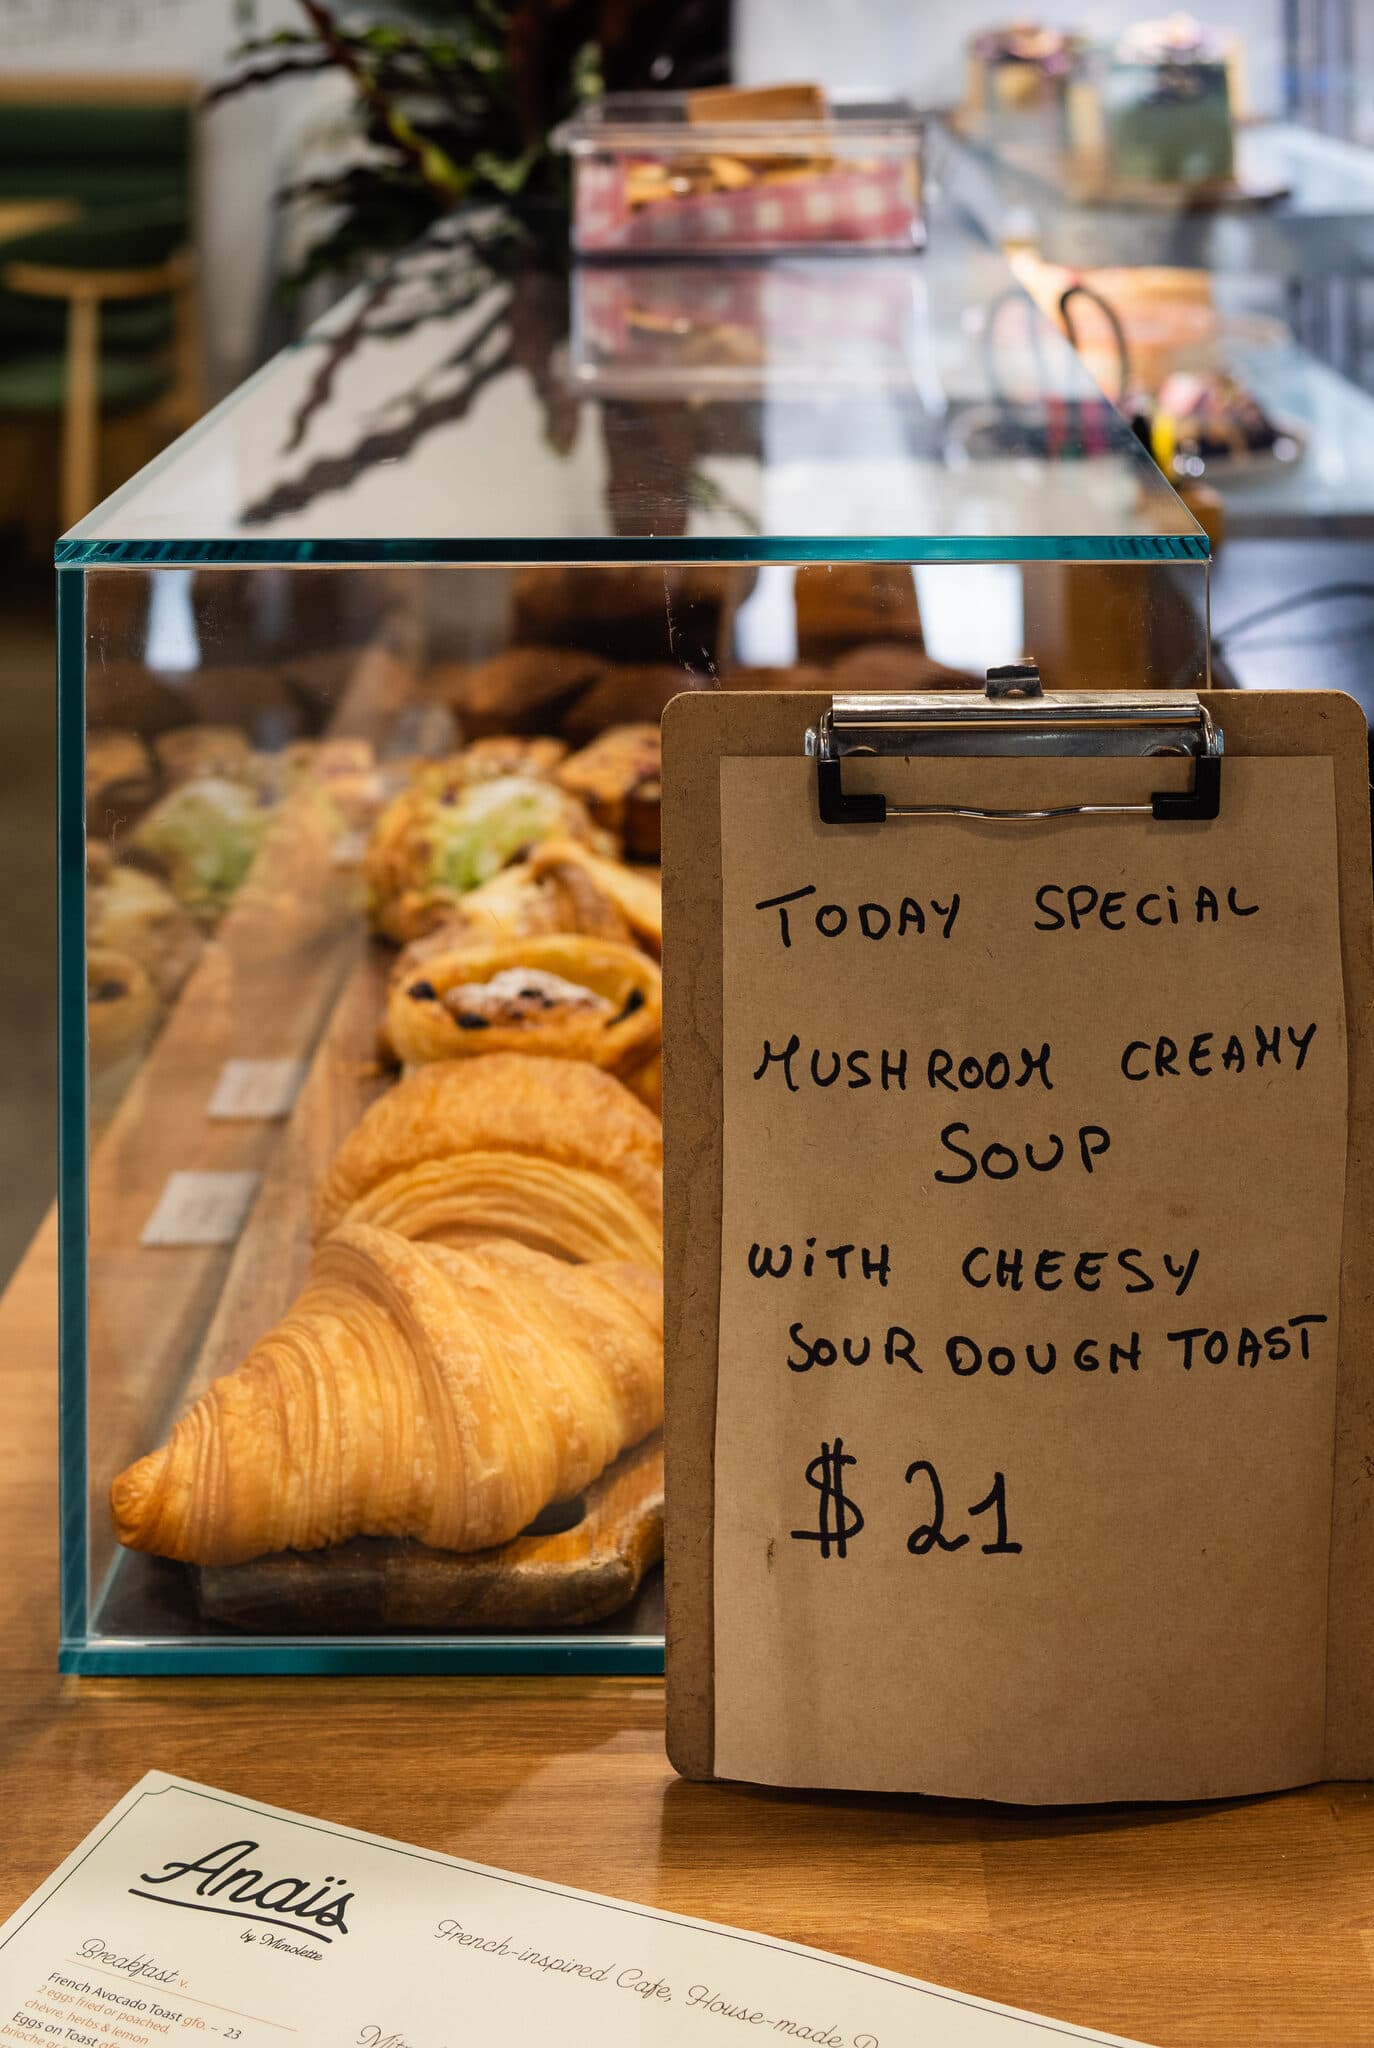 TODAY SPECiAL
MUSHROOM CREAMY
SOUP
WiTH CHEESY
SOURDOUGH TOAST
$ 21
Anaïs
by Mimolette
French-inspired Cafe, House-made
Breakfast v.
French Avocado Toast gfo. – 23
2 eggs fried or poached,
chèvre, herbs & lemon
Eggs on Toast
brioche or